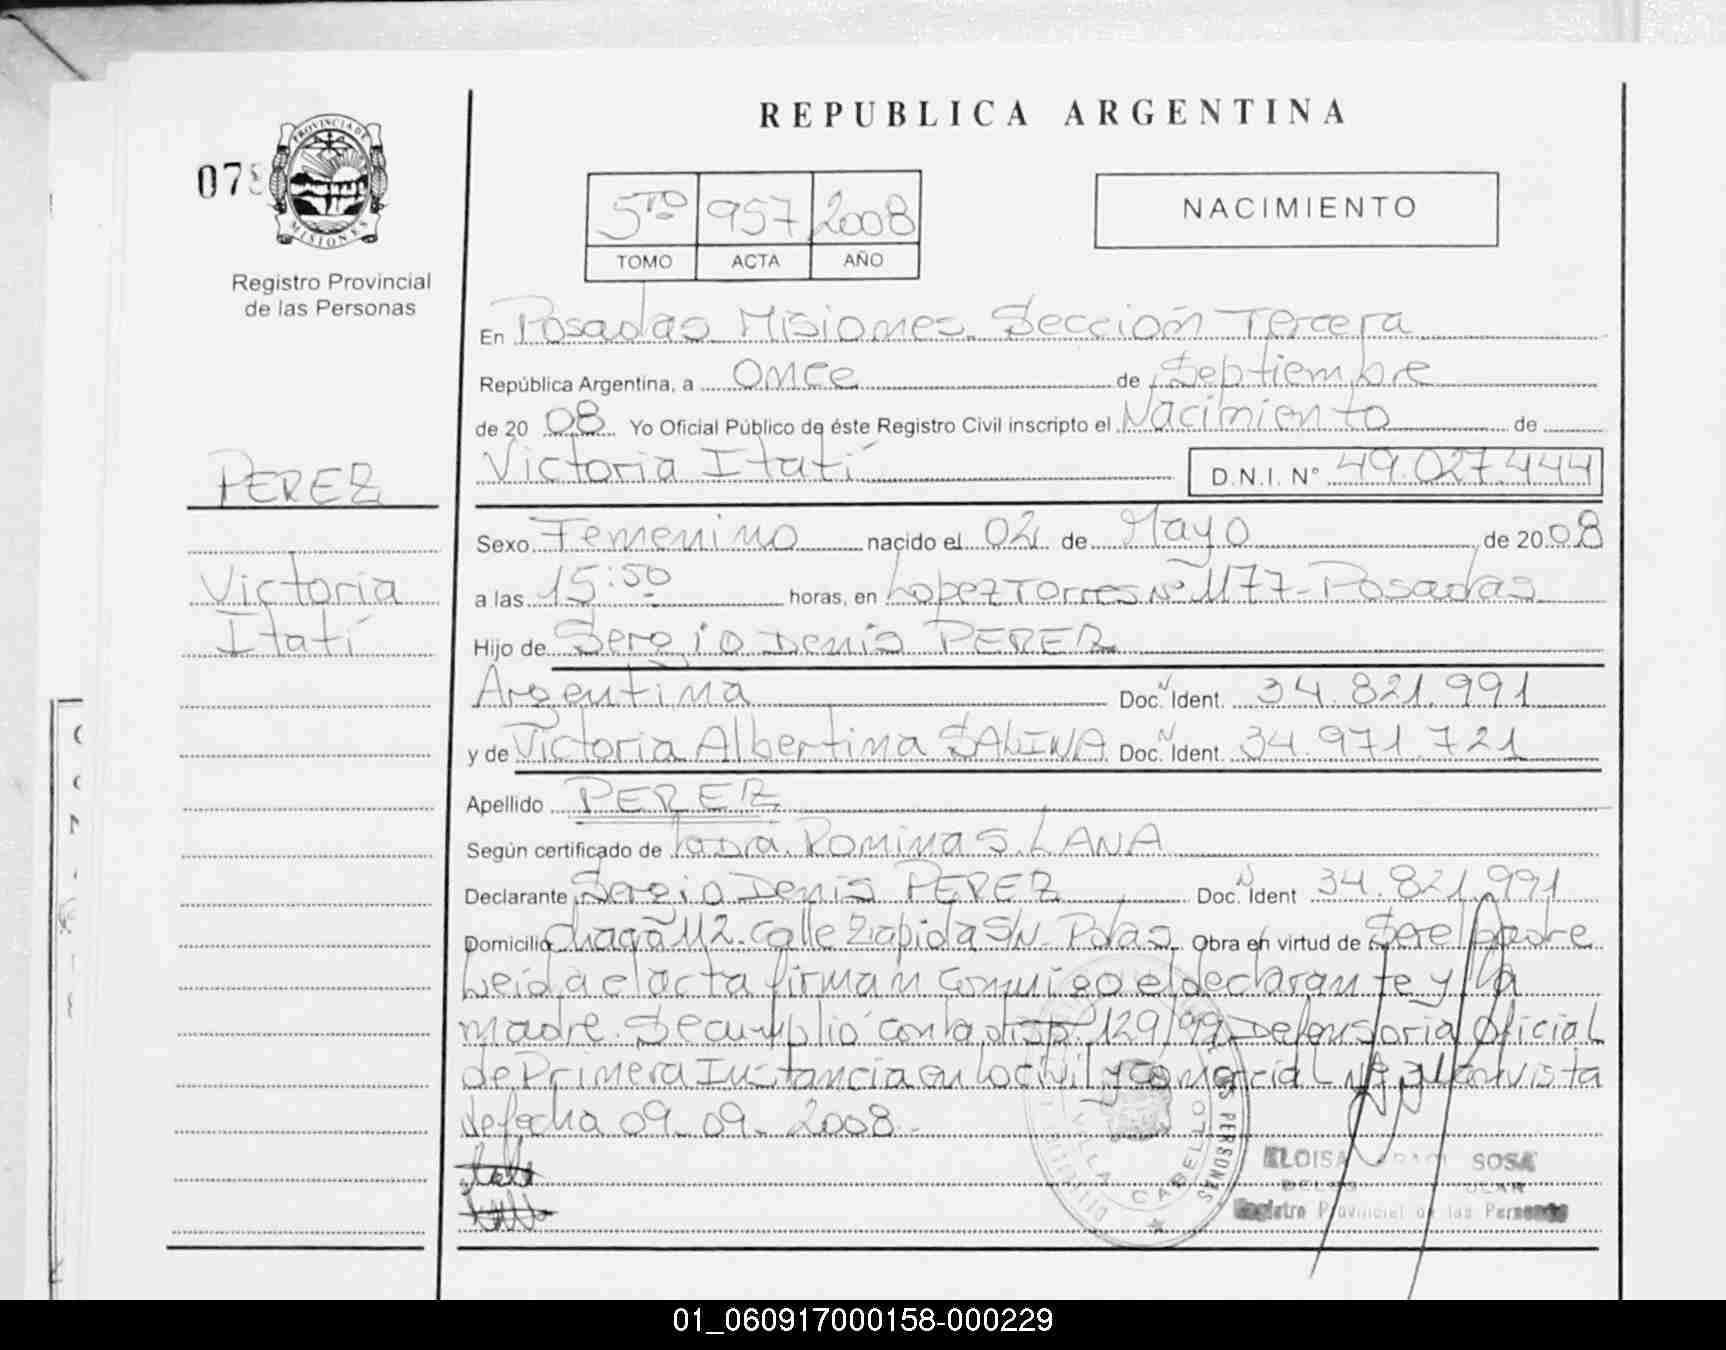 REPUBLICA ARGENTINA
07
PROVINCIA DE
MISIONES
Registro Provincial
de las Personas
5to 957 2008
TOMO ACTA AÑO
NACIMIENTO
En Posadas Misiones. Sección Tercera
República Argentina, a Once de Septiembre
de 20 08 Yo Oficial Público de éste Registro Civil inscripto el Nacimiento de
Victoria Itatí D.N.I. N° 49.027.444
PEREZ
Victoria
Itatí
Sexo Femenino nacido el 02 de Mayo de 20 08
a las 15:50 horas, en Lopez Torres Nº 1177 - Posadas
Hijo de Sergio Denis PEREZ
Argentina Doc. Ident. 34.821.991
y de Victoria Albertina SALINA Doc. Ident. 34.971.721
Apellido PEREZ
Según certificado de Romina S. LANA
Declarante Sergio Denis PEREZ Doc. Ident 34.821.991
Domicilio Chacra 112. Calle S/N - Pdas. Obra en virtud de Ser el padre
Leida el acta firman conmigo el declarante y la
madre. Se cumplió con la disp. 129/99 Defensoria Oficial
de Primera Instancia en lo civil y comercial Nº vista
de fecha 09-09-2008.-
VILLA CABELLO
PERSONAS
ELOISA SOSA
Registro Provincial de las Personas
01_060917000158-000229